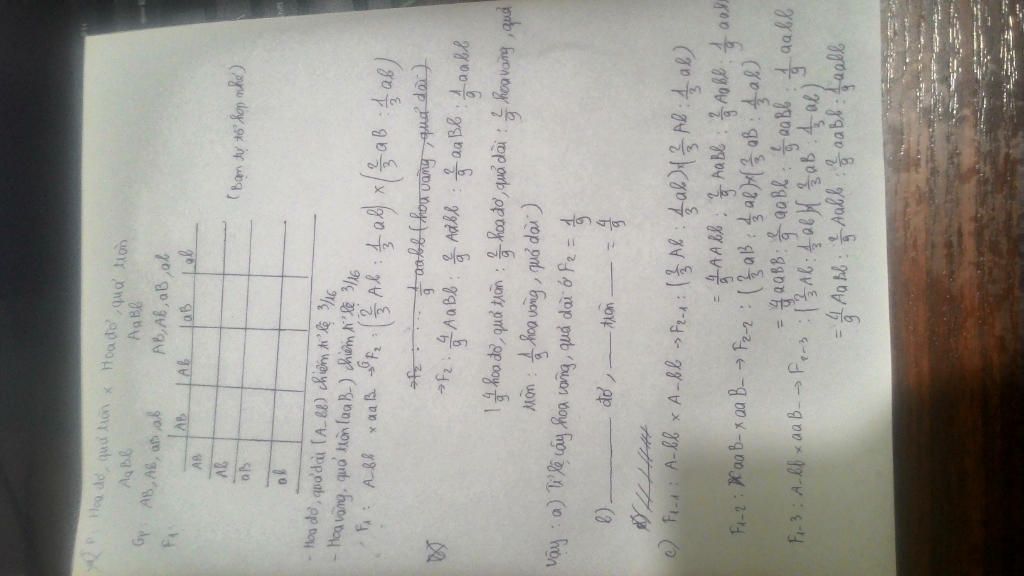 P: Hoa đỏ, quả tròn x Hoa đỏ, quả tròn
AaBb AaBb
Gp: AB, Ab, aB, ab AB, Ab, aB, ab
F1:
AB Ab aB ab
AB
Ab
aB
ab
(Bạn tự tổ hợp nhé)
- Hoa đỏ, quả dài (A_bb) chiếm tỉ lệ 3/16
- Hoa vàng, quả tròn (aaB_) chiếm tỉ lệ 3/16
F1: A-bb x aaB- → F2: (2/3 Ab : 1/3 ab) x (2/3 aB : 1/3 ab)
→F2: ... 1/9 aabb (hoa vàng, quả dài)
→F2: 4/9 AaBb : 2/9 Aabb : 2/9 aaBb : 1/9 aabb
(4/9 hoa đỏ, quả tròn : 2/9 hoa đỏ, quả dài : 2/9 hoa vàng, quả
tròn : 1/9 hoa vàng, quả dài)
Vậy: a) Tỉ lệ cây hoa vàng, quả dài ở F2 = 1/9
b) ___ đỏ, ___ tròn ___ = 4/9
c) F1-1: A-bb x A-bb → F2-1: (2/3 Ab : 1/3 ab)x(2/3 Ab : 1/3 ab)
= 4/9 AAbb : 2/9 Aabb : 2/9 Aabb : 1/9 aabb
F1-2: aaB- x aaB- → F2-2: (2/3 aB : 1/3 ab)x(2/3 aB : 1/3 ab)
= 4/9 aaBB : 2/9 aaBb : 2/9 aaBb : 1/9 aabb
F1-3: A-bb x aaB- → F2-3: (2/3 Ab : 1/3 ab)x(2/3 aB : 1/3 ab)
= 4/9 AaBb : 2/9 Aabb : 2/9 aaBb : 1/9 aabb